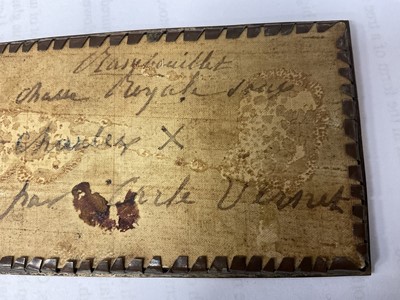 Rambouillet
chasse Royale sous
charles X
par Carle Vernet